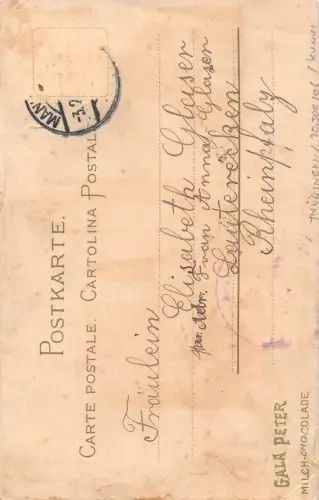 POSTKARTE.
CARTE POSTALE. CARTOLINA POSTAL
MAN
3.2
Fräulein
Elisabeth Glaser
per Adr. Frau Anna Glaser
Lauterecken
Rheinpfalz
GALA PETER
MILCH-CHOCOLADE